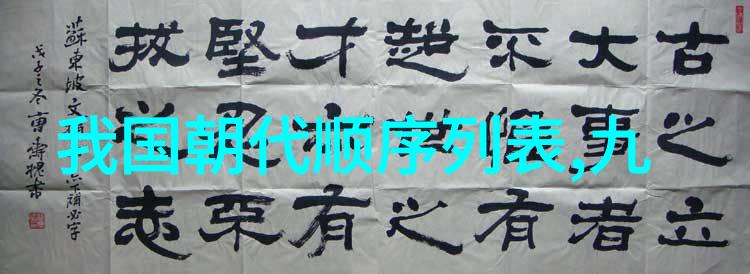 我国朝代顺序列表,九
古之立
大事者
不惟有
超世之
才亦有
堅忍不
拔之志
蘇東坡文
戊子之冬曹壽槐書